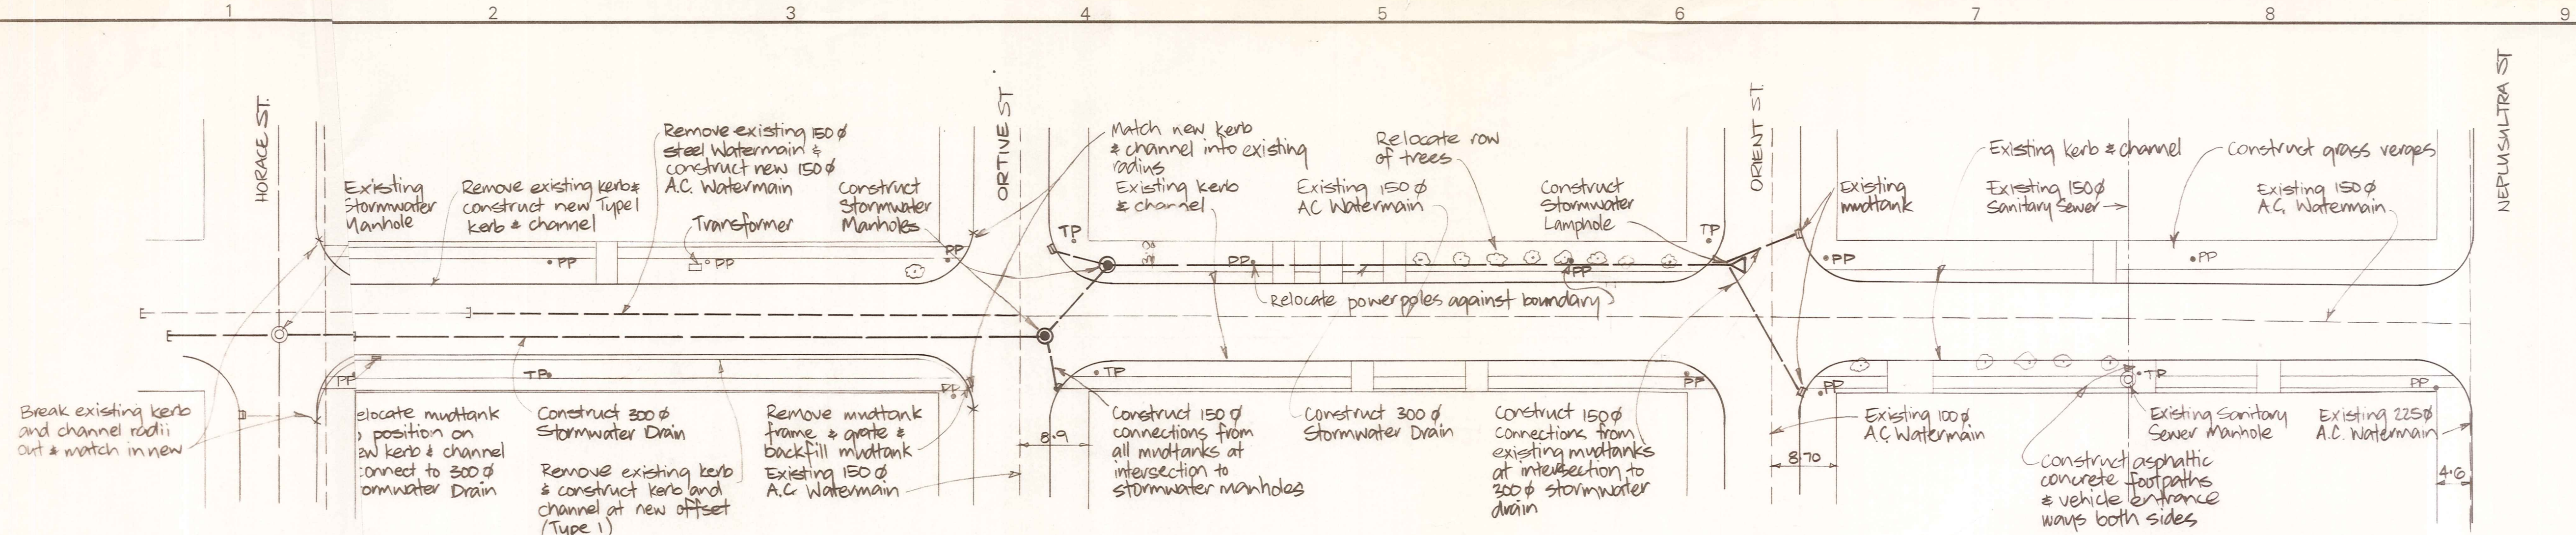 1 2 3 4 5 6 7 8 9
HORACE ST.
ORTIVE ST
ORIENT ST.
NEPLUSULTRA ST
Existing
Stormwater
Manhole
Remove existing kerb &
construct new Type 1
kerb & channel
Remove existing 150 ϕ
steel Watermain &
construct new 150 ϕ
A.C. Watermain
Transformer
Construct
Stormwater
Manholes
Match new kerb
& channel into existing
radius
Existing kerb
& channel
Existing 150 ϕ
AC Watermain
Relocate row
of trees
Construct
Stormwater
Lamphole
Existing
mudtank
Existing kerb & channel
Existing 150 ϕ
Sanitary Sewer
Construct grass verges
Existing 150 ϕ
A.C. Watermain
PP
PP
PP
TP
PP
PP
TP
PP
PP
Relocate power poles against boundary
PP
TP
PP
TP
PP
PP
TP
PP
Break existing kerb
and channel radii
out & match in new
elocate mudtank
position on
ew kerb & channel
connect to 300 ϕ
ormwater Drain
Construct 300 ϕ
Stormwater Drain
Remove existing kerb
& construct kerb and
channel at new offset
(Type 1)
Remove mudtank
frame & grate &
backfill mudtank
Existing 150 ϕ
A.C. Watermain
8.9
Construct 150 ϕ
connections from
all mudtanks at
intersection to
stormwater manholes
Construct 300 ϕ
Stormwater Drain
Construct 150 ϕ
connections from
existing mudtanks
at intersection to
300 ϕ stormwater
drain
8.70
Existing 100 ϕ
A.C. Watermain
Construct asphaltic
concrete footpaths
& vehicle entrance
ways both sides
Existing Sanitary
Sewer Manhole
Existing 225 ϕ
A.C. Watermain
4.6